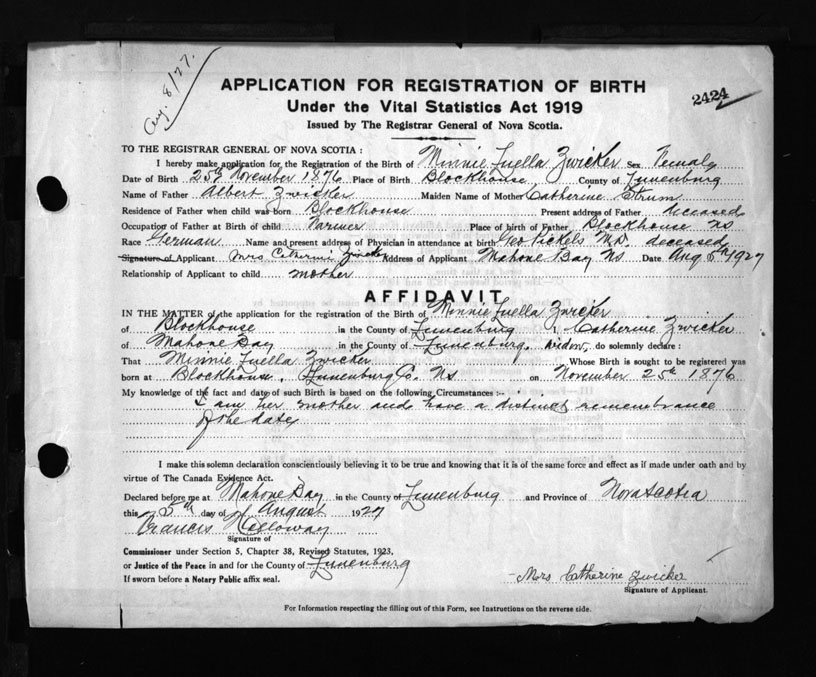 Aug. 8/27.
2424
APPLICATION FOR REGISTRATION OF BIRTH
Under the Vital Statistics Act 1919
Issued by The Registrar General of Nova Scotia.
TO THE REGISTRAR GENERAL OF NOVA SCOTIA :
I hereby make application for the Registration of the Birth of Minnie Luella Zwicker Sex Female
Date of Birth 25th November 1876 Place of Birth Blockhouse, County of Lunenburg
Name of Father Albert Zwicker Maiden Name of Mother Catherine Strum
Residence of Father when child was born Blockhouse Present address of Father deceased
Occupation of Father at Birth of child Farmer Place of birth of Father Blockhouse NS
Race German Name and present address of Physician in attendance at birth Geo Pickels M.D. deceased
Signature of Applicant Mrs Catherine Zwicker Address of Applicant Mahone Bay NS Date Aug 5th 1927
Relationship of Applicant to child mother
AFFIDAVIT
IN THE MATTER of the application for the registration of the Birth of Minnie Luella Zwicker
of Blockhouse in the County of Lunenburg I, Catherine Zwicker
of Mahone Bay in the County of Lunenburg. widow, do solemnly declare :
That Minnie Luella Zwicker Whose Birth is sought to be registered was
born at Blockhouse, Lunenburg Co. NS on November 25th 1876
My knowledge of the fact and date of such Birth is based on the following Circumstances :-
I am her mother and have a distinct remembrance
of the date
I make this solemn declaration conscientiously believing it to be true and knowing that it is of the same force and effect as if made under oath and by
virtue of The Canada Evidence Act.
Declared before me at Mahone Bay in the County of Lunenburg and Province of Nova Scotia
this 5th day of August 1927
Francis Holloway
Signature of
Commissioner under Section 5, Chapter 38, Revised Statutes, 1923,
or Justice of the Peace in and for the County of Lunenburg
If sworn before a Notary Public affix seal.
Mrs Catherine Zwicker
Signature of Applicant.
For Information respecting the filling out of this Form, see Instructions on the reverse side.